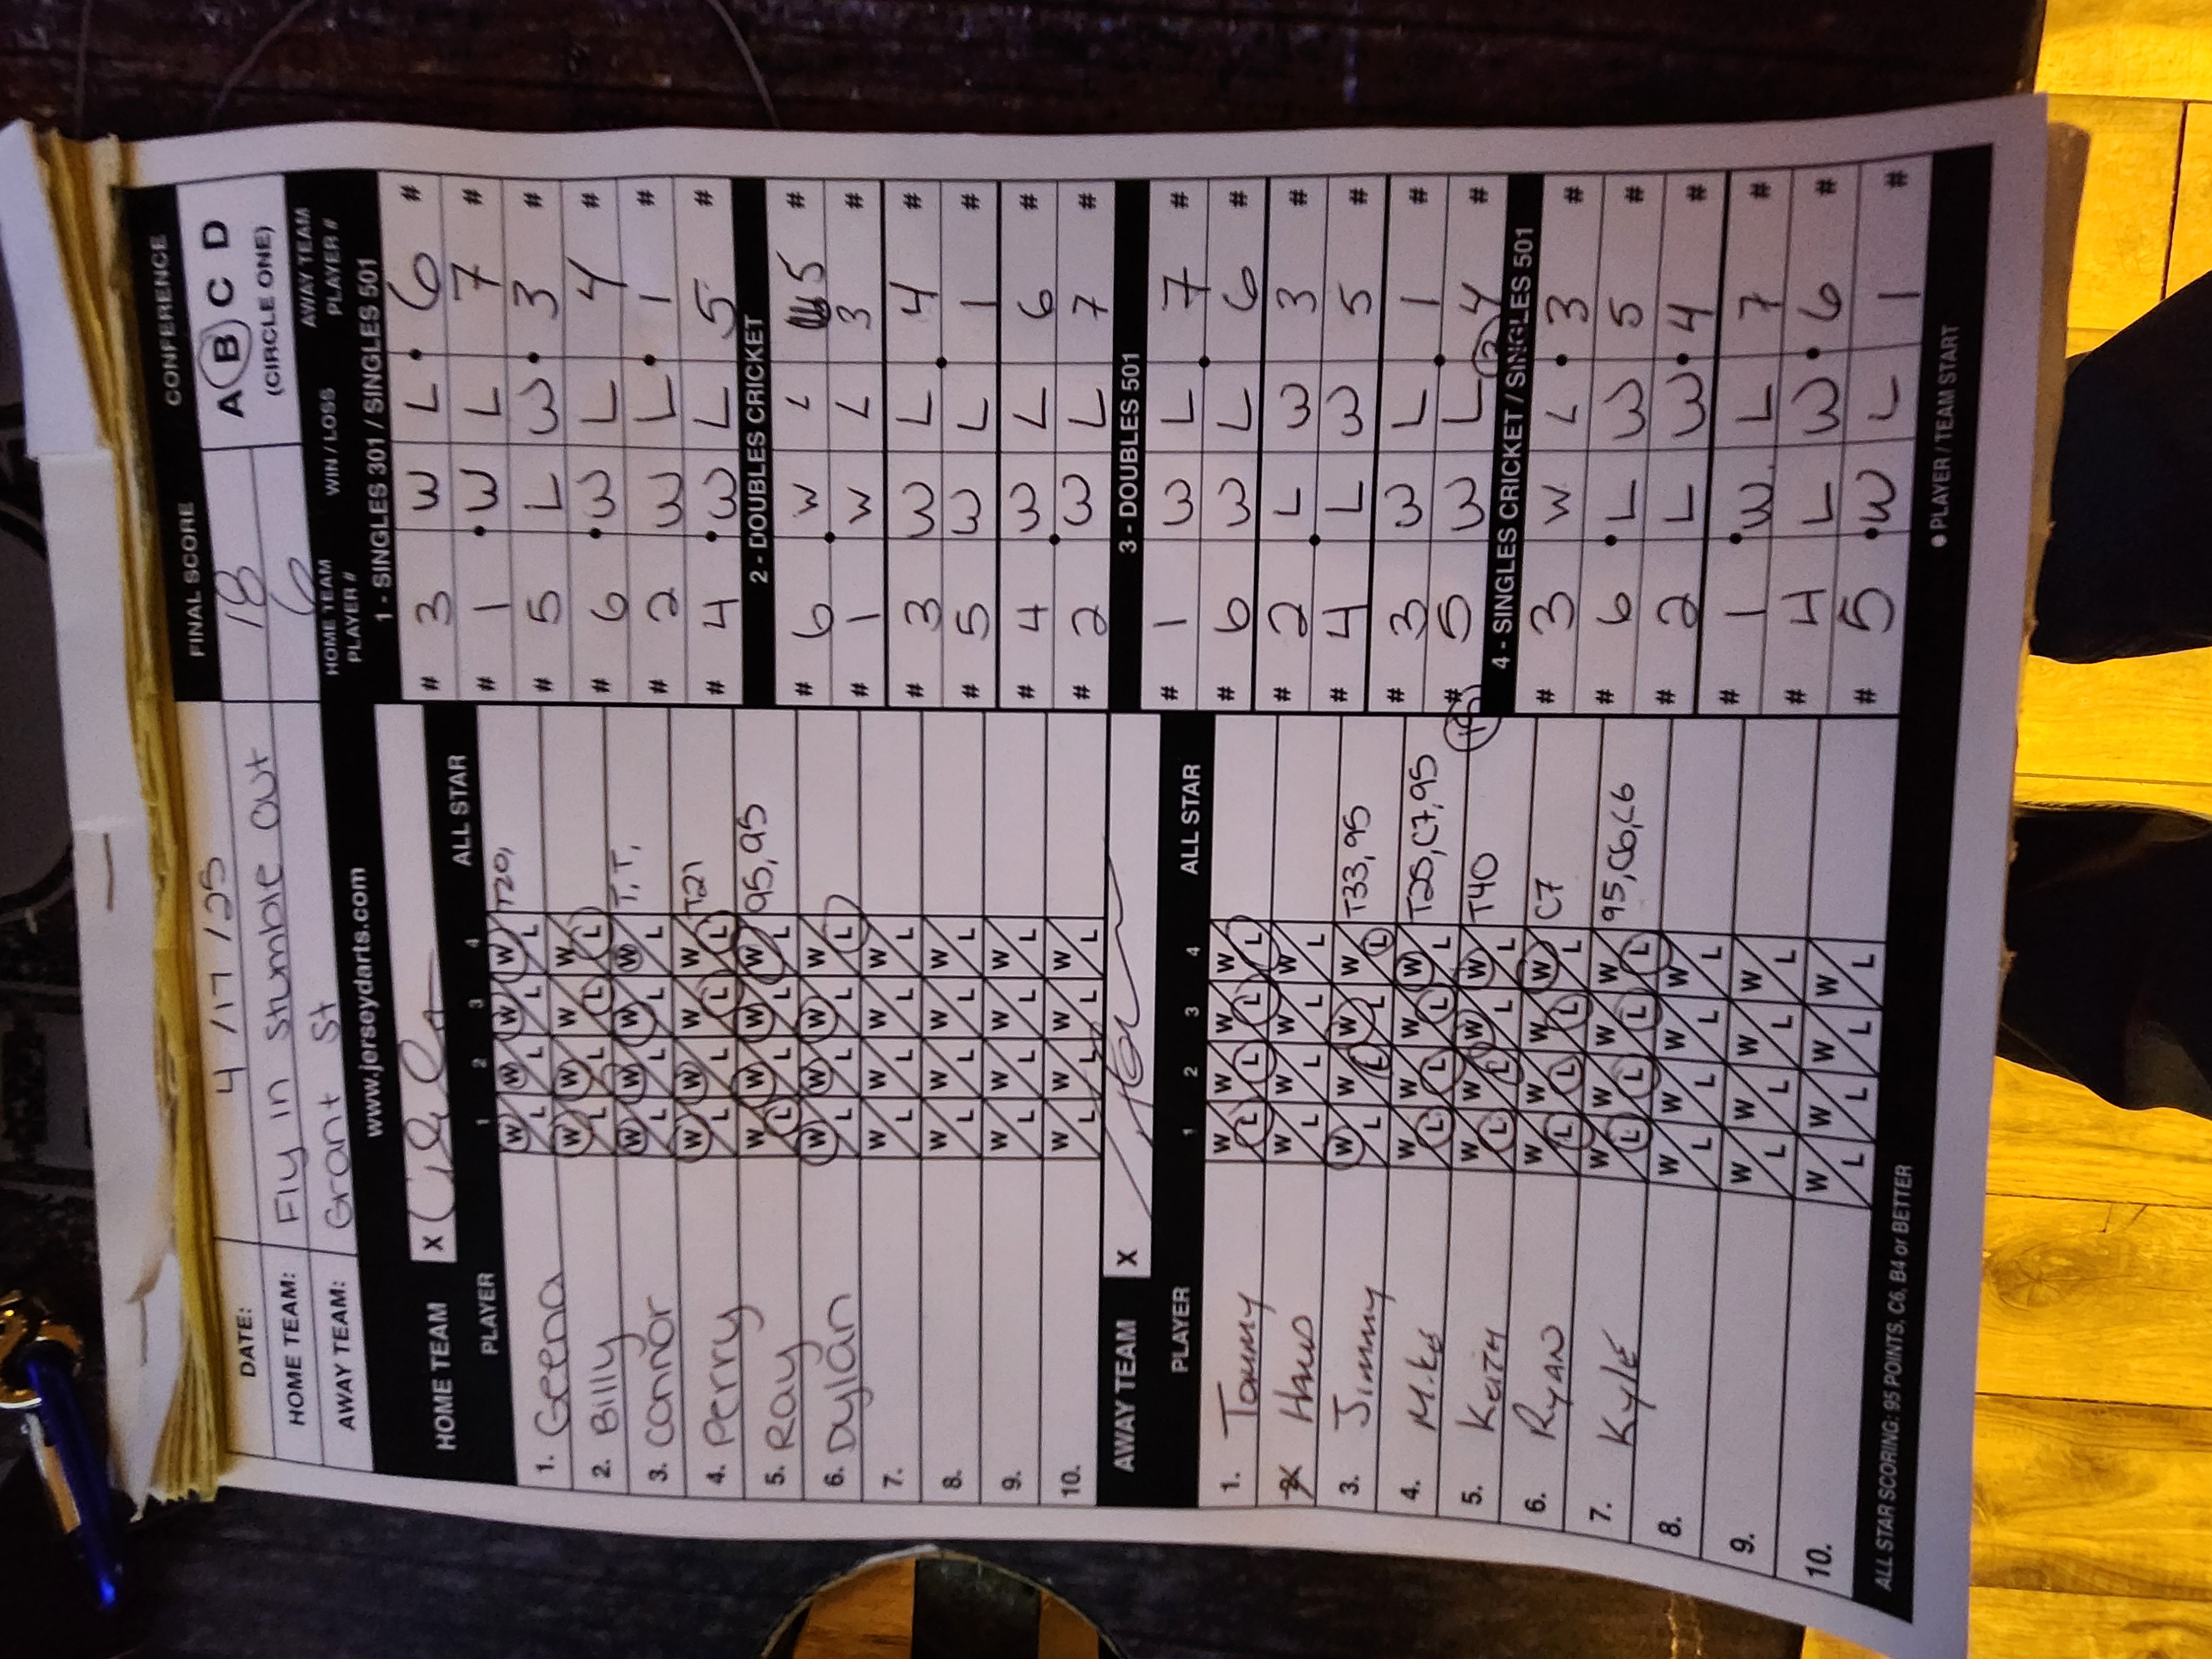 DATE: 4/17/25
HOME TEAM: Fly in Stumble out
AWAY TEAM: Grant St
FINAL SCORE
18
6
CONFERENCE
A B C D
(CIRCLE ONE)
www.jerseydarts.com
HOME TEAM PLAYER # WIN / LOSS AWAY TEAM PLAYER #
HOME TEAM X
PLAYER 1 2 3 4 ALL STAR
1. Geena W L W L W L W L T20,
2. Billy W L W L W L W L
3. Connor W L W L W L W L T, T,
4. Perry W L W L W L W L T21
5. Ray W L W L W L W L 95, 95
6. Dylan W L W L W L W L
7. W L W L W L W L
8. W L W L W L W L
9. W L W L W L W L
10. W L W L W L W L
AWAY TEAM X
PLAYER 1 2 3 4 ALL STAR
1. Tommy W L W L W L W L
W L W L W L W L
3. Jimmy W L W L W L W L T33, 95
4. Mike W L W L W L W L T25, C7, 95
5. Keith W L W L W L W L T40
6. Ryan W L W L W L W L C7
7. Kyle W L W L W L W L 95, C6, C6
8. W L W L W L W L
9. W L W L W L W L
10. W L W L W L W L
ALL STAR SCORING: 95 POINTS, C6, B4 or BETTER
1 - SINGLES 301 / SINGLES 501
# 3 W L 6 #
# 1 W L 7 #
# 5 L W 3 #
# 6 W L 4 #
# 2 W L 1 #
# 4 W L 5 #
2 - DOUBLES CRICKET
# 6 W L 5 #
# 1 W L 3 #
# 3 W L 4 #
# 5 W L 1 #
# 4 W L 6 #
# 2 W L 7 #
3 - DOUBLES 501
# 1 W L 7 #
# 6 W L 6 #
# 2 L W 3 #
# 4 L W 5 #
# 3 W L 1 #
# 5 W L 4 #
4 - SINGLES CRICKET / SINGLES 501
# 3 W L 3 #
# 6 L W 5 #
# 2 L W 4 #
# 1 W L 7 #
# 4 L W 6 #
# 5 W L 1 #
● PLAYER / TEAM START